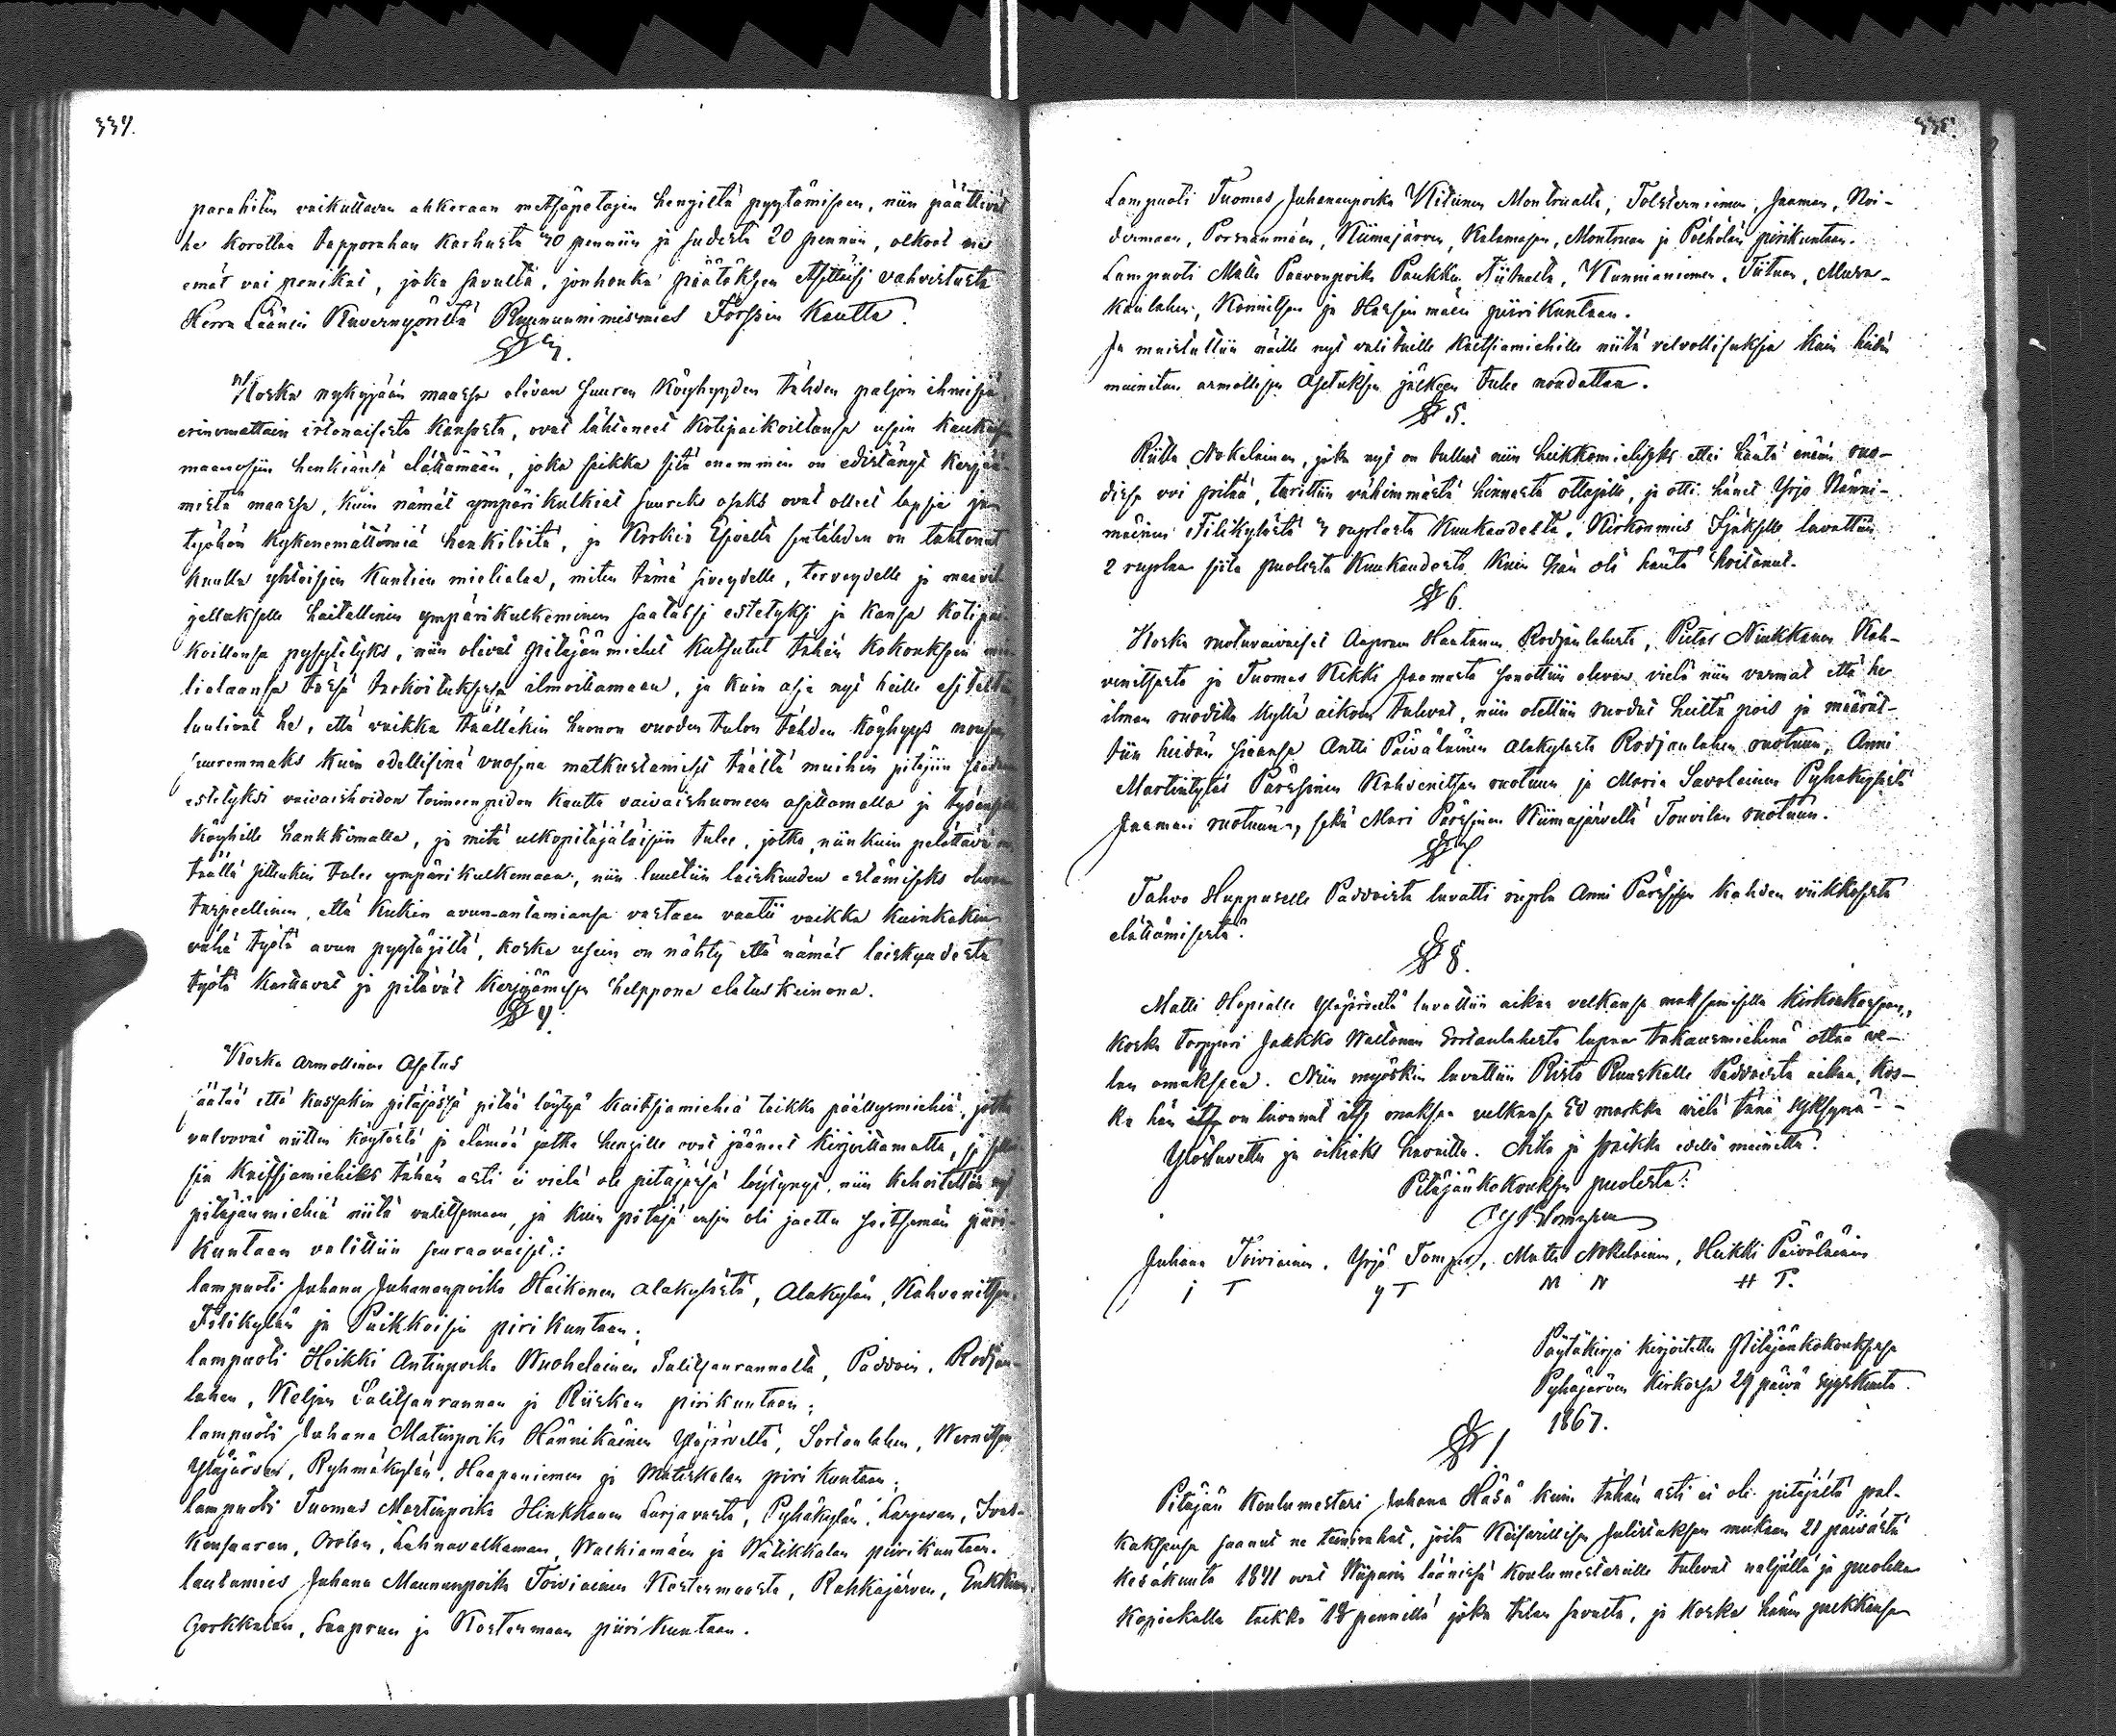 334.
parahiten vaikuttavan ahkeraan metsäpetojen hengiltä pyytämiseen, niin päättivät
he korottaa tapporahan karhusta 40 penniin ja sudesta 20 penniin, olkoot ne
emät vai penikat, joka savulta, jonhonka päätöksen etsittäisi vahvistusta
Herra Läänin Kuvernyöriltä Ruununnimismies Forssin kautta.
§ 3.
Koska nykyjään maassa olevan suuren köyhyyden tähden paljon ihmisiä,
erinomattain irtonaisesta kansasta, ovat lähteneet kotipaikoiltansa usein kaukaisiin
maanosiin henkiänsä elättämään, joka seikka sitä enemmin on edistänyt kerjää-
mistä maassa, kuin nämät ympärikulkiat suureks osaks ovat olleet lapsia ja
työhön kykenemättömiä henkilöitä, ja sentähden on tahtonut
kuulla yhtöisien kuntien mielialaa, miten tämä siveydelle, terveydelle ja maanvil-
jellukselle haitallinen ympärikulkeminen saataisi estetyksi ja kansa kotipai-
koillansa pysytetyks, niin olivat pitäjän miehet kutsutut tähän kokouksen mie-
lialaansa tässä tarkoituksessa ilmoittamaan, ja kuin asia nyt heille esitettiin,
luulivat he, että vaikka täälläkin huonon vuoden tulon tähden köyhyys nousee
suuremmaks kuin edellisinä vuosina matkustamiset täältä muihin pitäjiin saadaan
estetyksi vaivaishoidon toimeenpidon kautta vaivaishuoneen asettamalla ja työansion
köyhille hankkimalla, ja mitä ulkopitäjäläisiin tulee, jotka, niinkuin pelättävä on,
täällä sittenkin tulee ympärikulkemaan, niin luultiin laiskuuden estämiseks olevan
tarpeellinen, että kukin avun-antamiansa vastaan vaatii vaikka kuinkakin
vähä työtä avun pyytäjiltä, koska usein on nähty että nämät laiskuudesta
työtä karttavat ja pitävät kerjäämisen helppona elatuskeinona.
§ 4.
Koska Armollinen Asetus
säätää että kussakin pitäjässä pitää löytyä kaitsiamiehiä taikka päällysmiehiä, jotka
valvovat niitten käytöstä ja elämää jotka hengille ovat jääneet kirjoittamatta, ja sella-
sia kaitsiamiehiks tähän asti ei vielä ole pitäjässä löytynyt, niin kehoitettiin nyt
pitäjänmiehiä niitä valitsemaan, ja kuin pitäjä ensin oli jaettu seitsemän piiri-
kuntaan valittiin seuraavaiset:
lampuoti Juhana Juhananpoika Häikönen Alakylästä, Alakylän, Kahvenitsan,
Tilikylän ja Puikkoisin pirikuntaan;
lampuoti Heikki Antinpoika Wuohelainen Salitsanrannalta, Paddoin, Rodjan-
lahen, Keljan Salitsanrannan ja Riiskan pirikuntaan;
lampuoti Juhana Matinpoika Hännikäinen Yläjärveltä, Sortanlahen, Wernitsan
Yläjärven, Ryhmäkylän, Haapaniemen ja Matiskalan piri kuntaan;
lampuoti Tuomas Martinpoika Hinkkanen Larjavasta, Pyhäkylän, Larjavan, Ivas-
kensaaren, Orolan, Lahnavalkaman, Walkiamäen ja Wätikkalan piirikuntaan.
lautamies Juhana Maununpoika Toiviainen Kostermaasta, Rahkajärven, Enkkuan,
Gorkkalan, Saapruun ja Kostermaan piirikuntaan.
335.
Lampuoti Tuomas Juhananpoika Kitunen Montrualta, Tolsterniemen, Jaaman, Noi-
dermaan, Porsaanmäen, Kiimajärven, Kalamajan, Montruan ja Pölhölän pirikuntaan.
Lampuoti Matti Paavonpoika Paukku Tiitualta, Kunnianiemen, Tiituan, Musa-
kanlahen, Konnitsan ja Hassinmäen piirikuntaan.
Ja muistuttiin näille nyt valituille kaitsiamiehille niitä velvollisuksia kuin heidän
mainitun armollisen Asetuksen jälkeen tulee noudattaa.
§ 5.
Riitta Nokelainen, joka nyt on tullut niin heikkomieliseks ettei häntä enään ruo-
dissa voi pitää, tarittiin vähimmästä hinnasta ottajille, ja otti hänet Yrjö Nänni-
mäinen Tilikylästä 3 ruplasta kuukaudelta. Kirkonmies Sjäkselle luvattiin
2 ruplaa siitä puolesta kuukaudesta, kuin hän oli häntä hoitanut.
§ 6.
Koska ruotuvaivaiset Aapram Hantunen Rodjanlahesta, Pietar Ninkkanen Kah-
venitsasta ja Tuomas Kekki Jaamasta sanottiin olevan vielä niin varmat että he
ilman ruodita kyllä aikoin tulevat, niin otettiin ruodut heiltä pois ja määrät-
tiin heidän siaansa Antti Päiväläinen Alakylästä Rodjanlahen ruotuun, Anni
Martintytär Pärssinen Kahvenitsan ruotuun ja Maria Savolainen Pyhäkylästä
Jaaman ruotuun, sekä Mari Pärssinen Kiimajärveltä Touvilan ruotuun.
§ 7.
Tahvo Huppuselle Paddoista luvatti rupla Anni Pärssisen kahden viikkosesta
elättämisestä.
§ 8.
Matti Hopialle Yläjärveltä luvattiin aikaa velkansa maksamisella kirkonkassaan,
koska torppari Jaakko Waltonen Sortanlahesta lupaa takausmiehenä ottaa ve-
lan omaksena. Niin myöskin luvattiin Risto Ruuskalle Paddoista aikaa, kos-
ka hän on luvanut itse maksaa velkansa 50 markka vielä tänä syksynä.
Ylösluvettu ja oikiaks havaittu. Aika ja paikka edellä mainittu.
Pitäjänkokouksen puolesta:
Juhana Toiviainen, Yrjö Tompuri, Matti Nokelainen, Heikki Päiväläinen
J T Y T M N H P.
Pöytäkirja kirjoitettu Pitäjänkokouksessa
Pyhäjärven Kirkossa 29 päivä Syyskuuta
1867.
§ 1
Pitäjän koulumestari Juhana Häsä kuin tähän asti ei ole pitäjältä pal-
kaksensa saanut ne teinirahat, joita Keisarillisen Julistuksen mukaan 21 päivästä
Kesäkuuta 1841 ovat Wiipurin läänissä koulumestareille tulevat neljällä ja puolella
kopiekalla taikka 18 pennillä joka talon savusta, ja koska hänen palkkansa